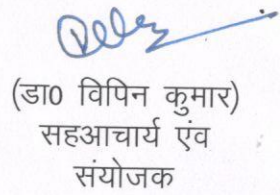 (डा0 विपिन कुमार)
सहआचार्य एंव
संयोजक